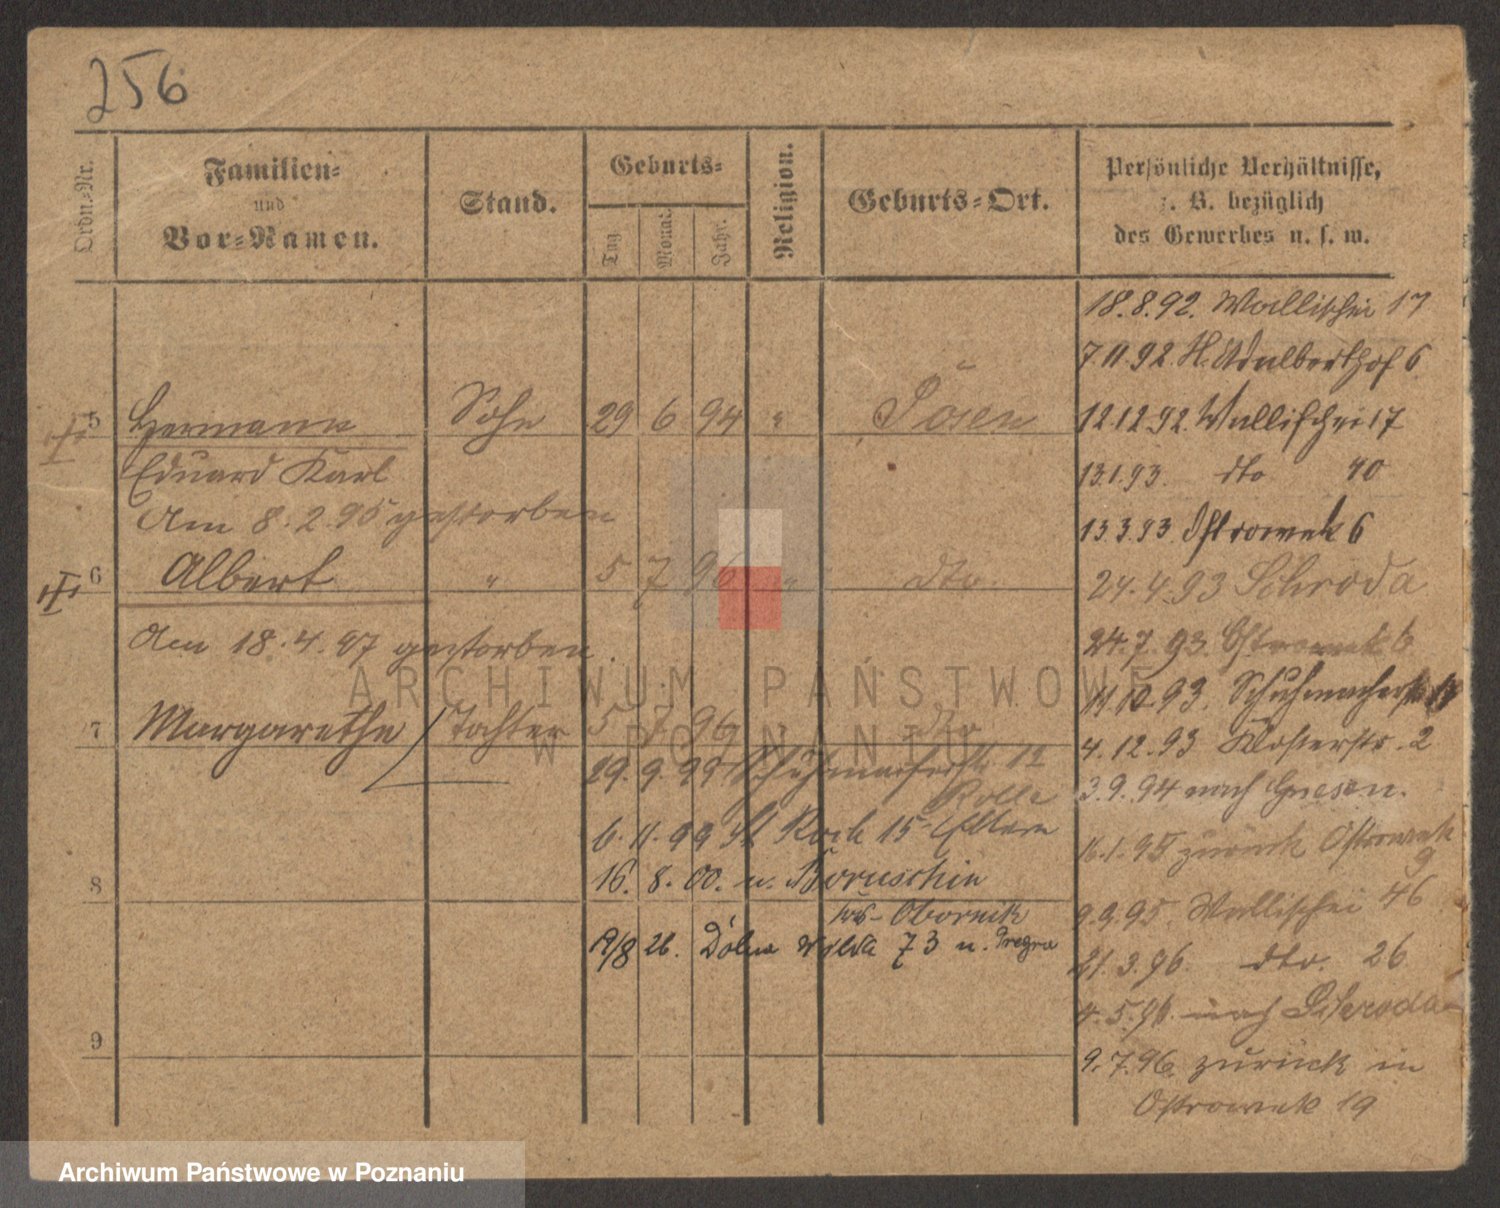 256
Ordn.-Nr.
Familien-
und
Vor-Namen.
Stand.
Geburts-
Tag.
Monat.
Jahr.
Religion.
Geburts-Ort.
Persönliche Verhältnisse,
z. B. bezüglich
des Gewerbes u. s. w.
18.8.92. Wallischei 17
7.11.92. H. Adalberthof 6
5 Hermann Sohn 29 6 94 " Posen
12.12.92. Wallischei 17
Eduard Karl
13.1.93. dto 40
Am 8.2.95 gestorben
13.3.93. Ostrowek 6
6 Albert " 5 7 96 " dto.
24.4.93 Schroda
Am 18.4.97 gestorben.
24.7.93. Ostrowek 6
11.10.93. Schuhmacherstr
7 Margarethe Tochter 5 7 96 dto
4.12.93 Klosterstr. 2
29.9.99 Schuhmacherstr 12
3.9.94 nach Gnesen.
Rolle
6.11.99 St Roch 15 Eltern
16.1.95 zurück Ostrowek
9
8 16. 8. 00. n. Boruschin
Obornik
9.9.95. Wallischei 46
19/8 26. Dolna Wilda 73 n.
21.3.96. dto. 26
4.5.96. nach Schroda
9
9.7.96. zurück in
Ostrowek 19
ARCHIWUM PAŃSTWOWE
W POZNANIU
Archiwum Państwowe w Poznaniu